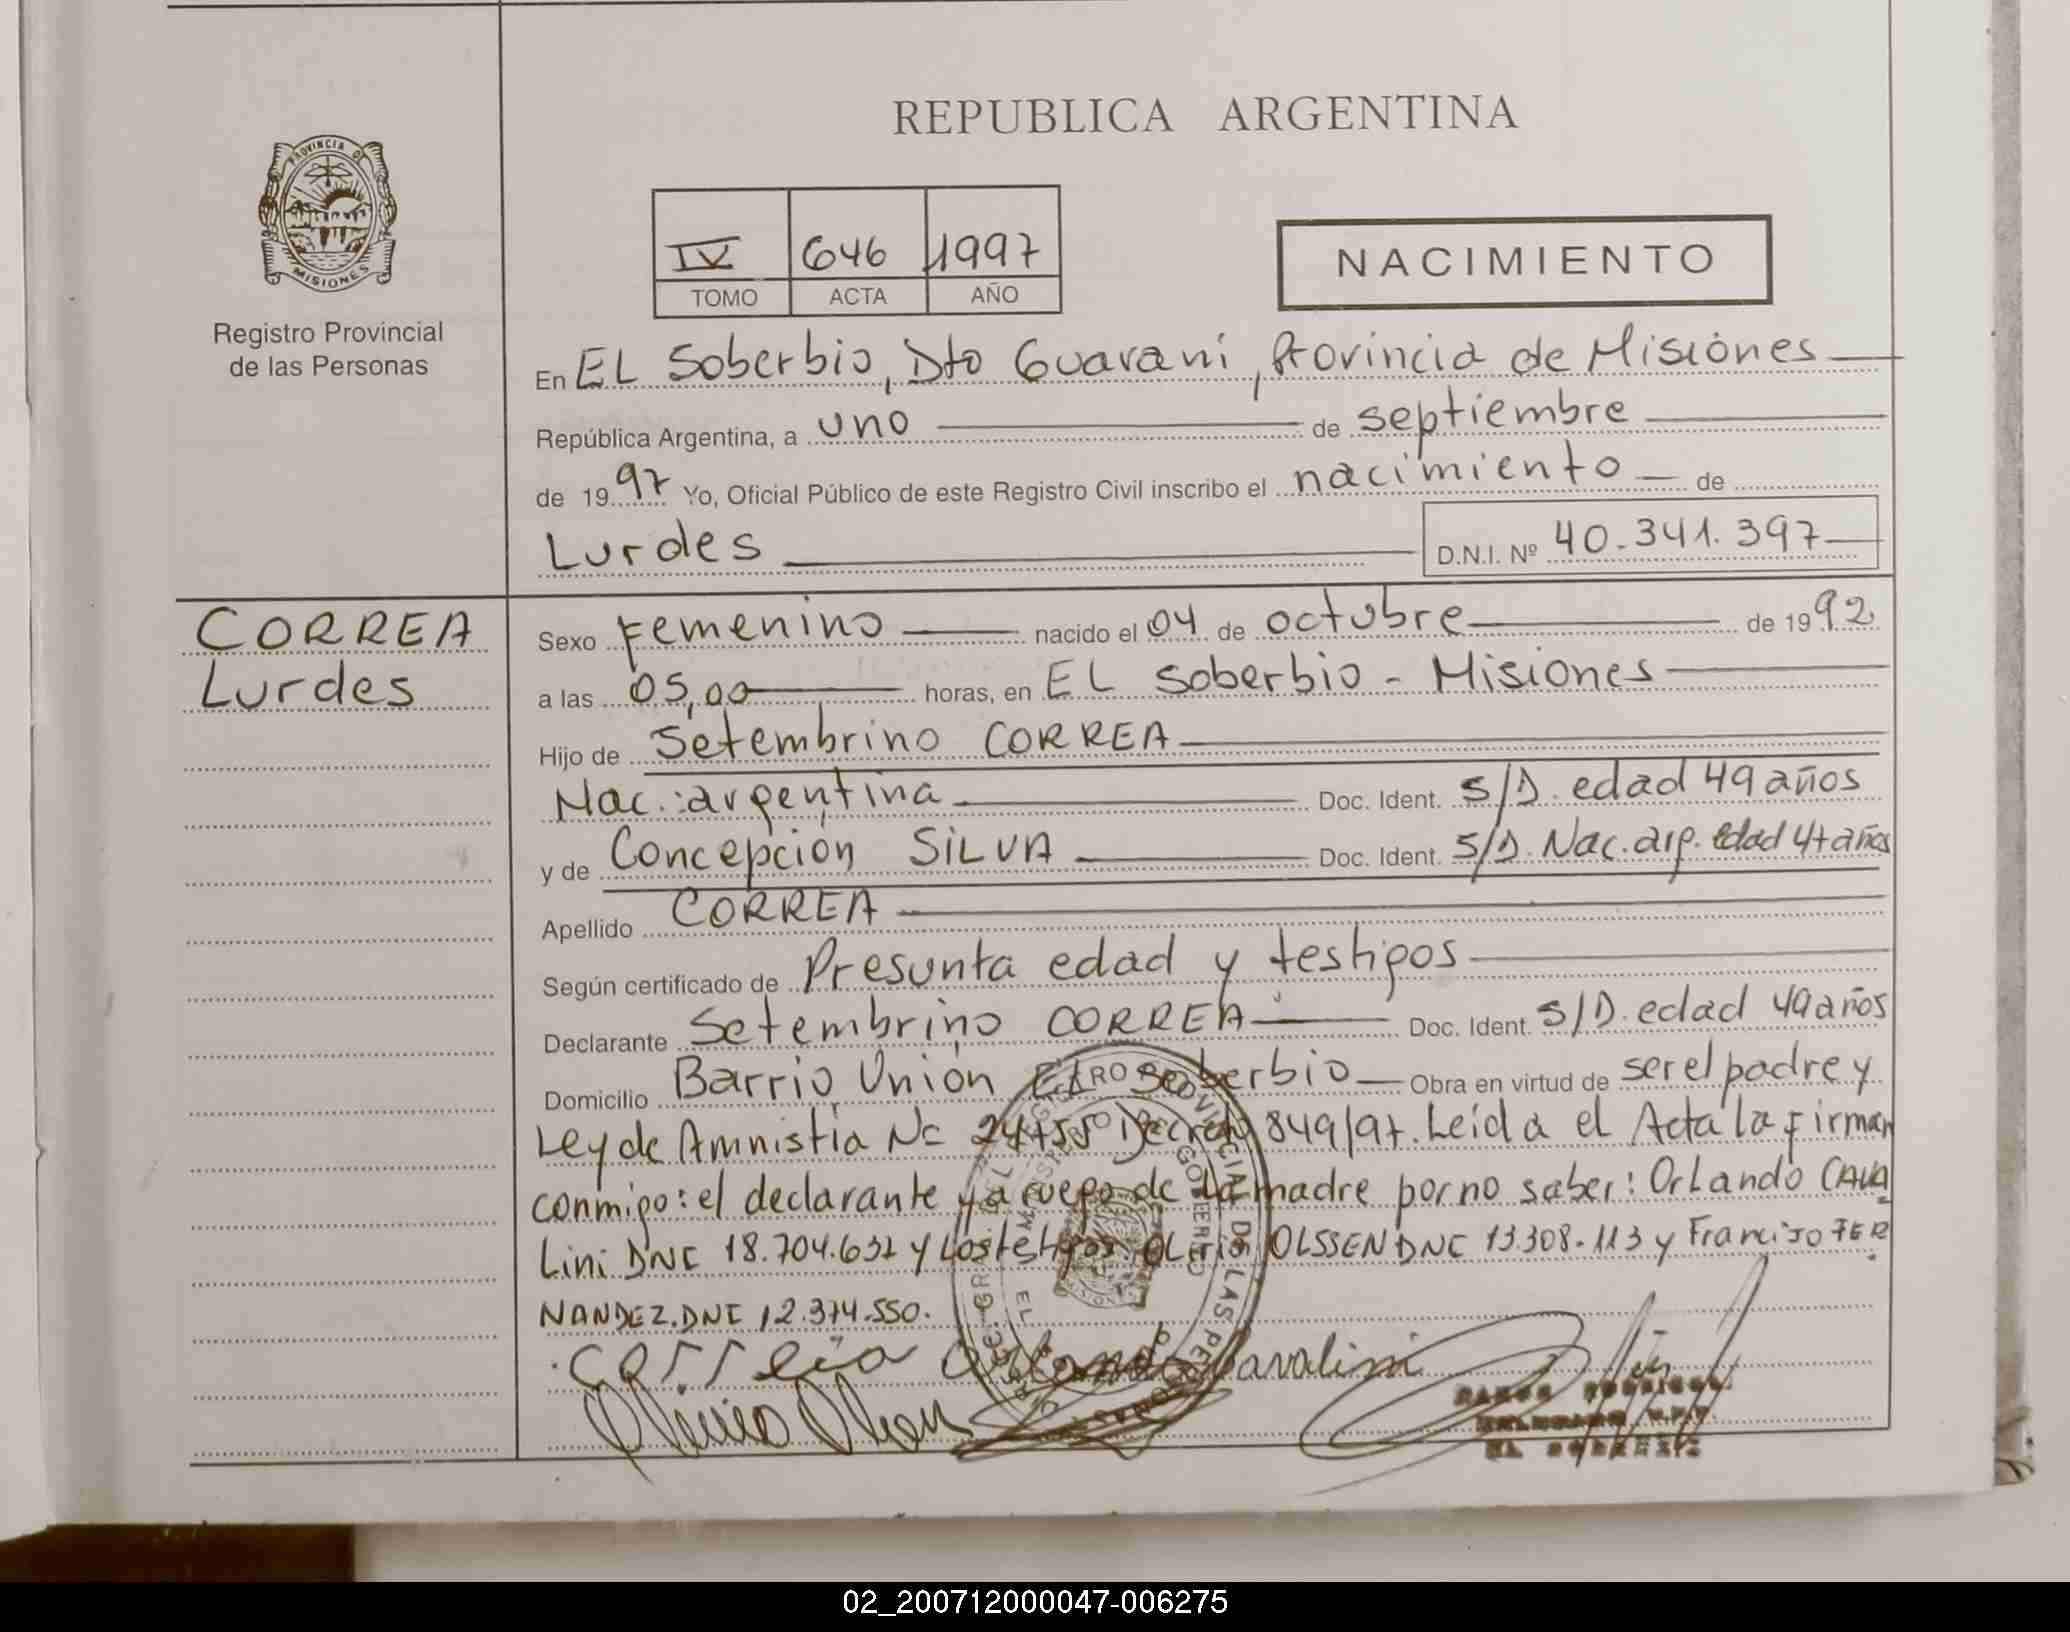 REPUBLICA ARGENTINA
PROVINCIA DE
MISIONES
Registro Provincial
de las Personas
IV 646 1997
TOMO ACTA AÑO
NACIMIENTO
En EL Soberbio, Dto Guarani, Provincia de Misiones
República Argentina, a uno de septiembre
de 1997 Yo, Oficial Público de este Registro Civil inscribo el nacimiento de
Lurdes D.N.I. Nº 40.341.397
CORREA
Lurdes
Sexo Femenino nacido el 04 de octubre de 1992
a las 05,00 horas, en EL Soberbio - Misiones
Hijo de Setembrino CORREA
Nac.: argentina Doc. Ident. S/D. edad 49 años
y de Concepción SILVA Doc. Ident. S/D. Nac. arg. edad 47 años
Apellido CORREA
Según certificado de Presunta edad y testigos
Declarante Setembrino CORREA Doc. Ident. S/D. edad 49 años
Domicilio Barrio Unión EL Soberbio Obra en virtud de ser el padre y
Ley de Amnistia Nº 24755 Decreto 849/97. Leida el Acta la firman
conmigo: el declarante y a ruego de la madre por no saber: Orlando CAVA
Lini DNI 18.704.632 y los testigos: OLSSEN DNI 13.308.113 y Francisco FER
NANDEZ. DNI 12.374.550.
Correia Orlando Cavalini
EL SOBERBIO
02_200712000047-006275